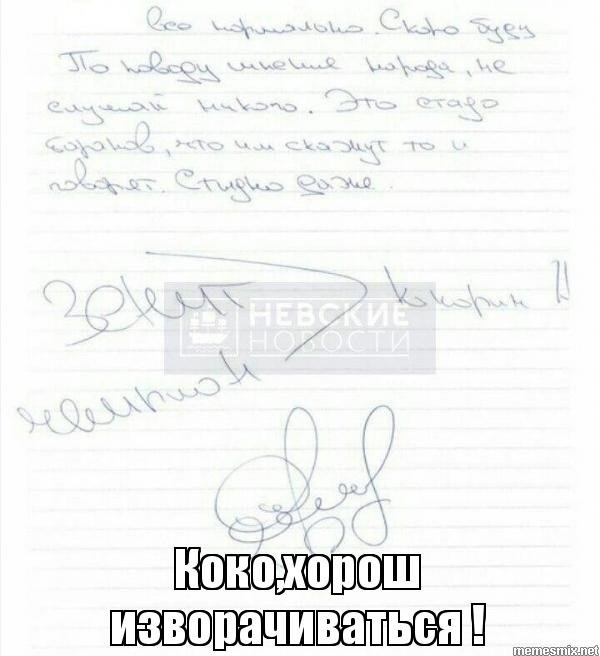 все нормально. Скоро буду
По поводу мнение народа, не
слушай никого. Это стадо
баранов, что им скажут то и
говорят. Стыдно даже.
Зенит Кокорин 11
НЕВСКИЕ
НОВОСТИ
чемпион
Коко,хорош
изворачиваться !
memesmix.net